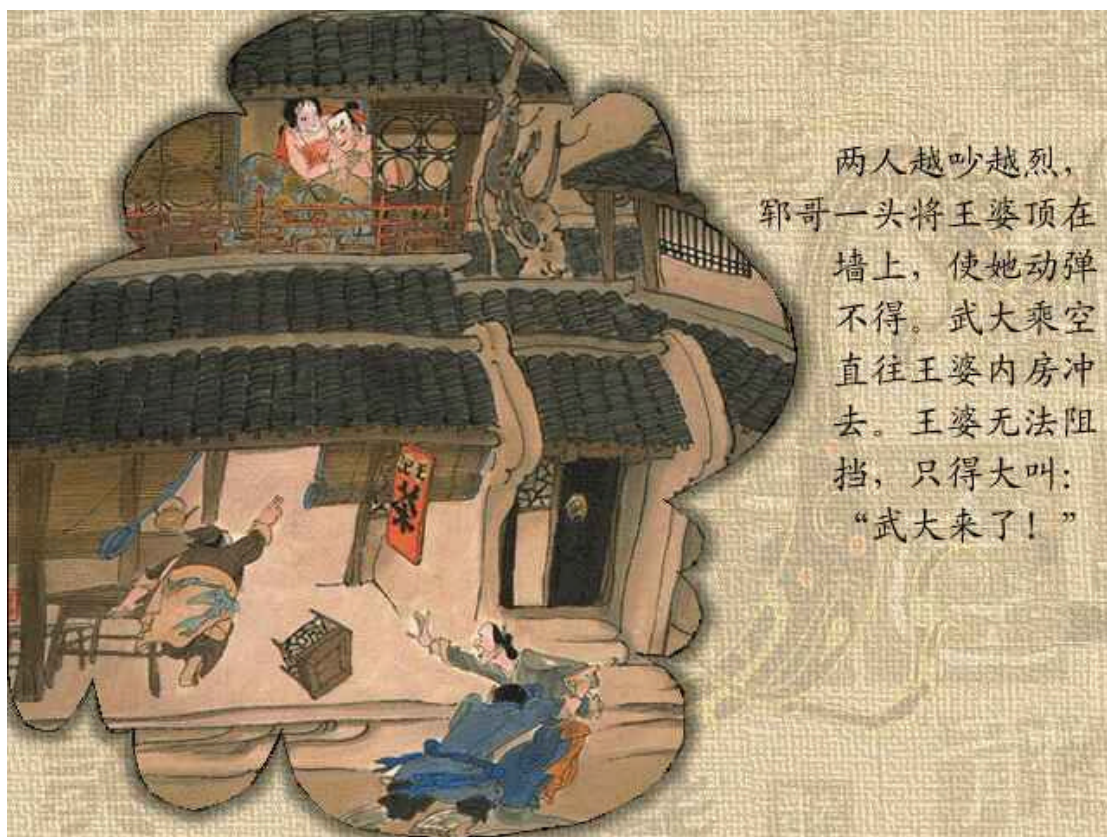 两人越吵越烈，
郓哥一头将王婆顶在
墙上，使她动弹
不得。武大乘空
直往王婆内房冲
去。王婆无法阻
挡，只得大叫：
“武大来了！”
茶